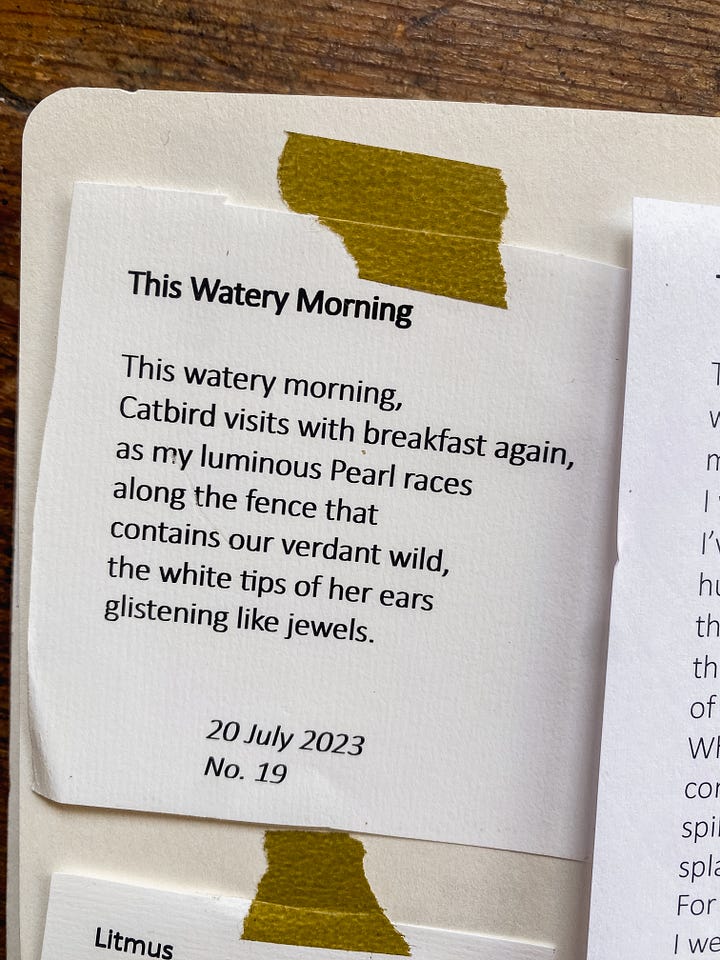 This Watery Morning
This watery morning,
Catbird visits with breakfast again,
as my luminous Pearl races
along the fence that
contains our verdant wild,
the white tips of her ears
glistening like jewels.
20 July 2023
No. 19
Litmus
of
For
I we